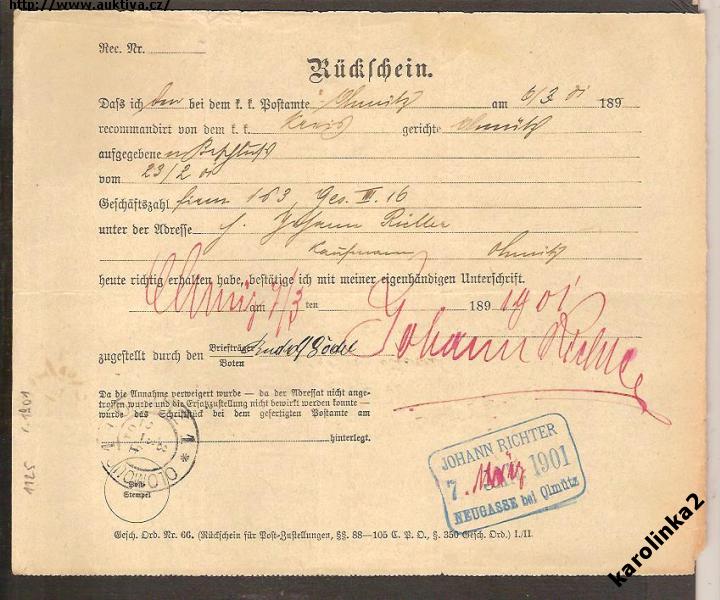 http://www.auktiva.cz/
Rec. Nr.
Rückschein.
Daß ich den bei dem k. k. Postamte Olmütz am 6/3 01 189
recommandirt von dem k. k. Kreis gerichte Olmütz
aufgegebene n Beschluß
vom 23/2 01
Geschäftszahl firm 163, Ges. III. 16
unter der Adresse H. Johann Richter
Kaufmann Olmütz
heute richtig erhalten habe, bestätige ich mit meiner eigenhändigen Unterschrift.
Olmütz am 7/3 ten 189 1901
Johann Richter
zugestellt durch den Briefträger
Boten
Rudolf
Da die Annahme verweigert wurde — da der Adressat nicht ange-
troffen wurde und die Ersatzzustellung nicht bewirkt werden konnte —
wurde das Schriftstück bei dem gefertigten Postamte am
hinterlegt.
OLOMOUC
1
Post-
Stempel
JOHANN RICHTER
7. März 1901
NEUGASSE bei Olmütz
Gesch. Ord. Nr. 66. (Rückschein für Post-Zustellungen, §§. 88—105 C. P. O., §. 350 Gesch. Ord.) I./II.
1125
r. 1901
karolinka2